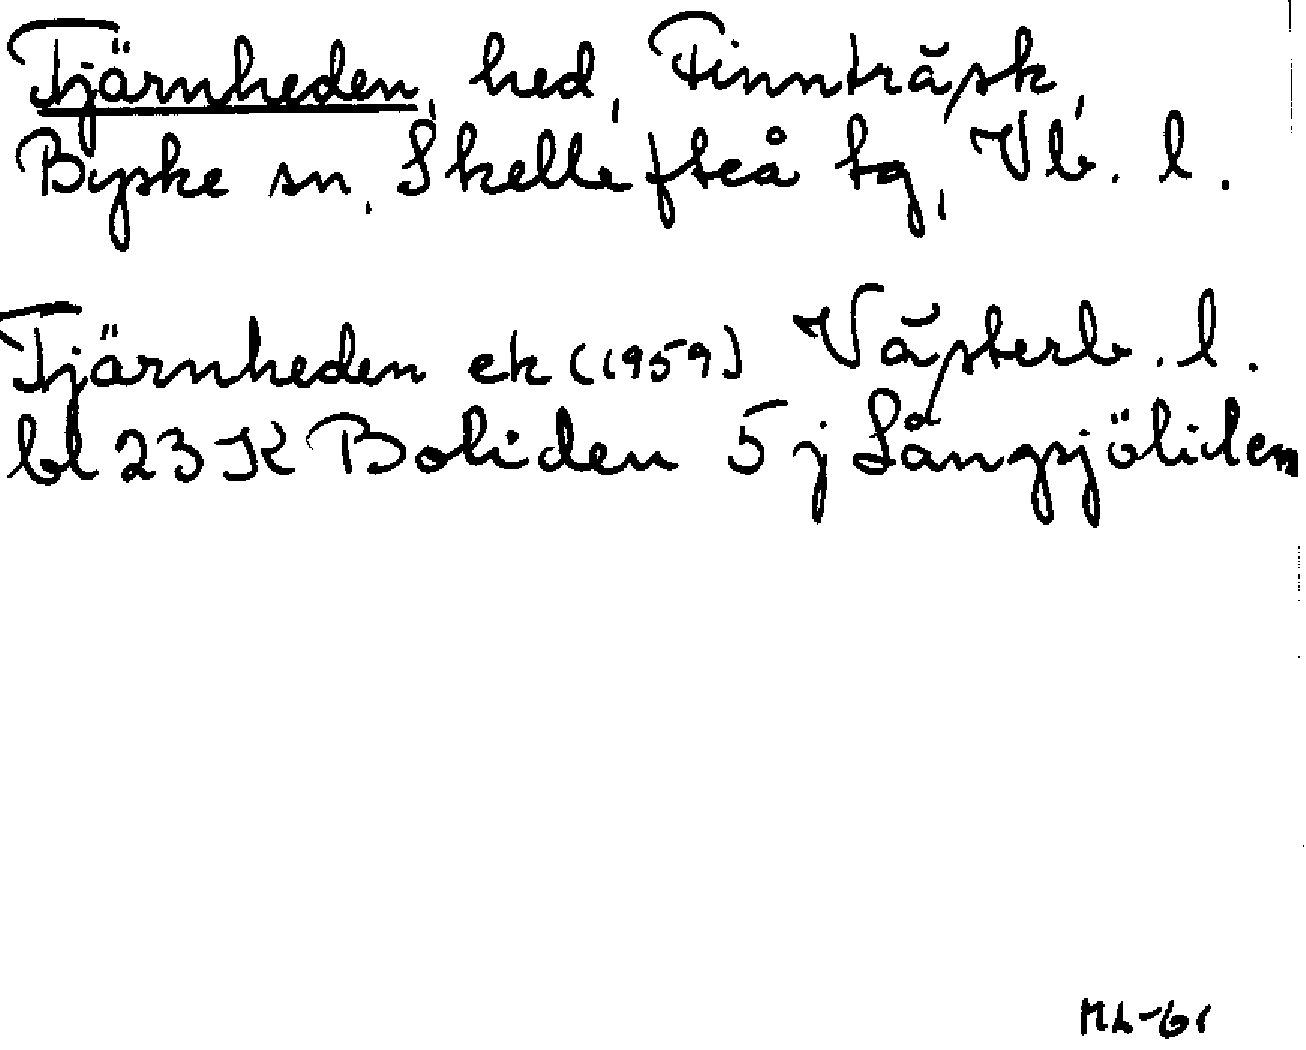 Tjärnheden, hed, Finnträsk,
Byske sn, Skellefteå tg, Vb. l.
Tjärnheden ek (1959) Västerb. l.
bl 23 K Boliden 5 j Långsjöliden
ML-61